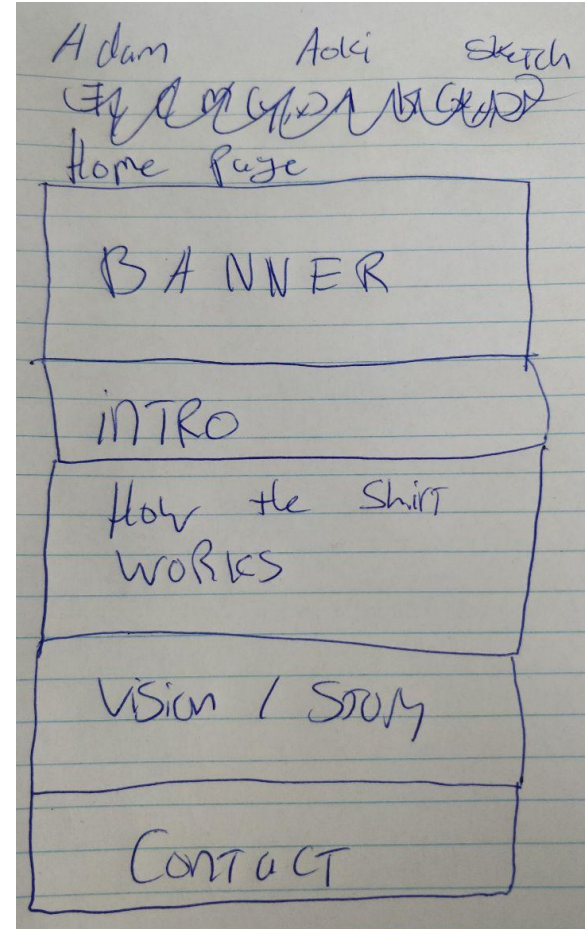 Adam Aoki Sketch
Home Page
BANNER
INTRO
How the Shirt
WORKS
Vision / Story
Contact